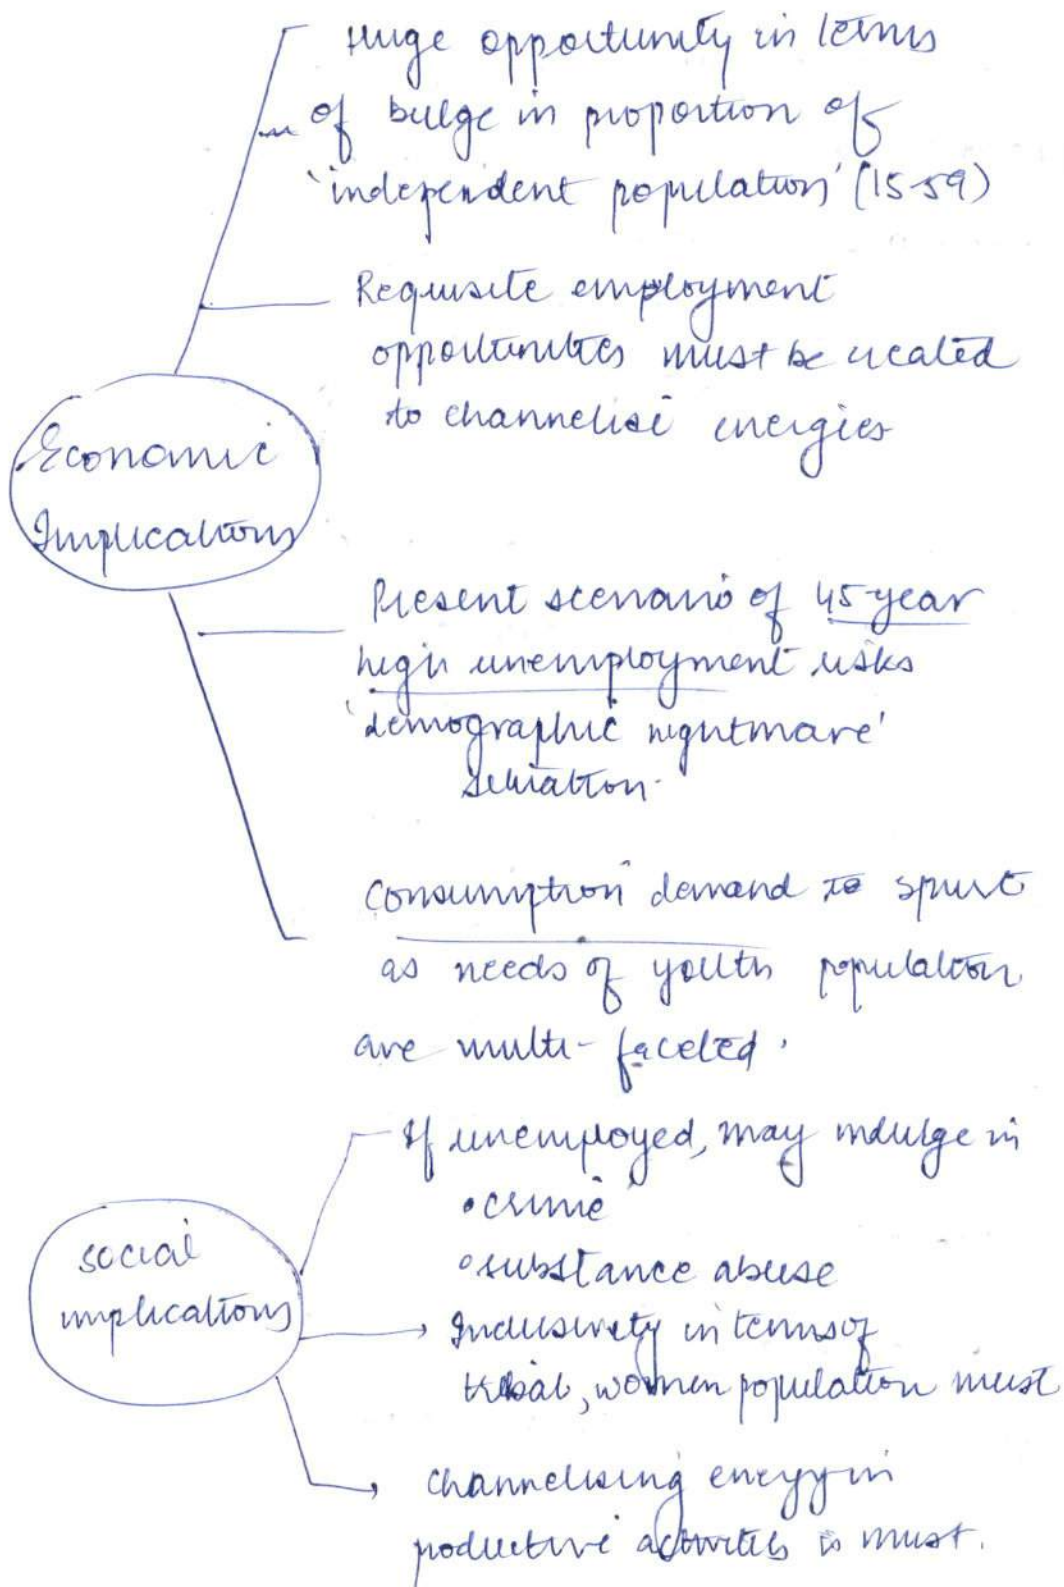 Huge opportunity in terms
of bulge in proportion of
'independent population' (15-59)
Requisite employment
opportunities must be created
to channelise energies
Economic
Implications
Present scenario of 45-year
high unemployment risks
'demographic nightmare'
situation.
Consumption demand to spurt
as needs of youth population
are multi-faceted.
If unemployed, may indulge in
• crime
• substance abuse
social
implications
Inclusivity in terms of
tribal, women population must
channelising energy in
poductive activities is must.